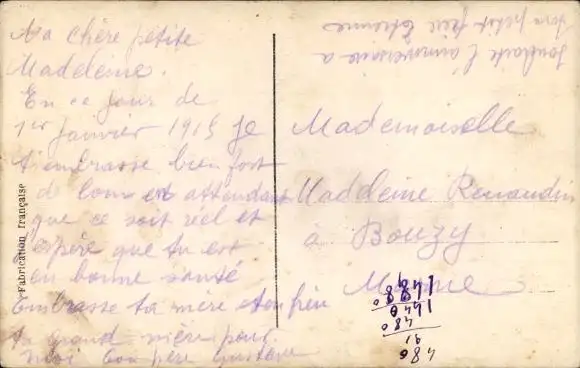 Ma chère petite
Madeleine.
En ce jour de
1er Janvier 1915 Je
t'embrasse bien fort
d loin en attendant
que ce soit réel et
espère que tu est
en bonne santé
Embrasse ta mère et ton frère
ta grand mère pour
moi ton père Gustave
souhaite l'anniversaire a
ton petit frère Etienne
Mademoiselle
Madeleine Renaudin
à Bouzy
Marne
Fabrication française